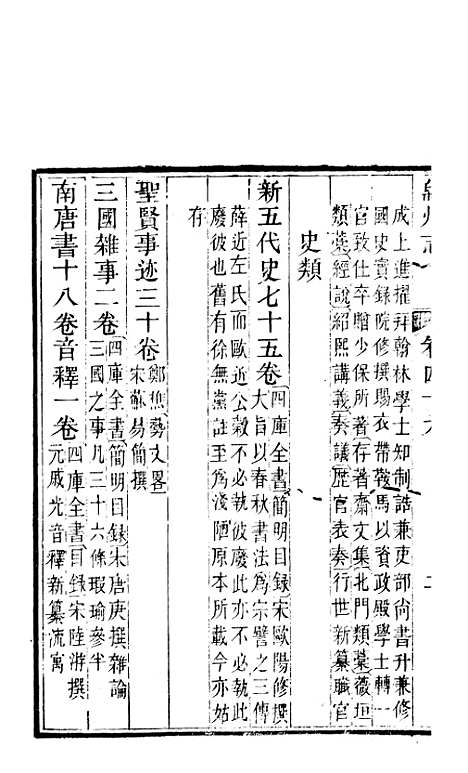 成上進擢拜翰林學士知制誥兼吏部尙書升兼修
國史實錄院修撰賜衣帶鞍馬以資政殿學士轉一
官致仕卒贈少保所著存著齋文集北門類藳薇垣
類藳經說紹熙講義奏議歷官表奏行世新纂職官
史類
新五代史七十五卷四庫全書簡明目錄宋歐陽修撰
大旨以春秋書法爲宗譬之三傳
薛近左氏而歐近公穀不必執彼廢此亦不必執此
廢彼也舊有徐無黨註至爲淺陋原本所載今亦姑
存
聖賢事迹三十卷鄭樵藝文畧
宋蘇易簡撰
三國雜事二卷四庫全書簡明目錄宋唐庚撰雜論
三國之事凡三十六條瑕瑜參半
南唐書十八卷音釋一卷四庫全書目錄宋陸游撰
元戚光音釋新纂流寓